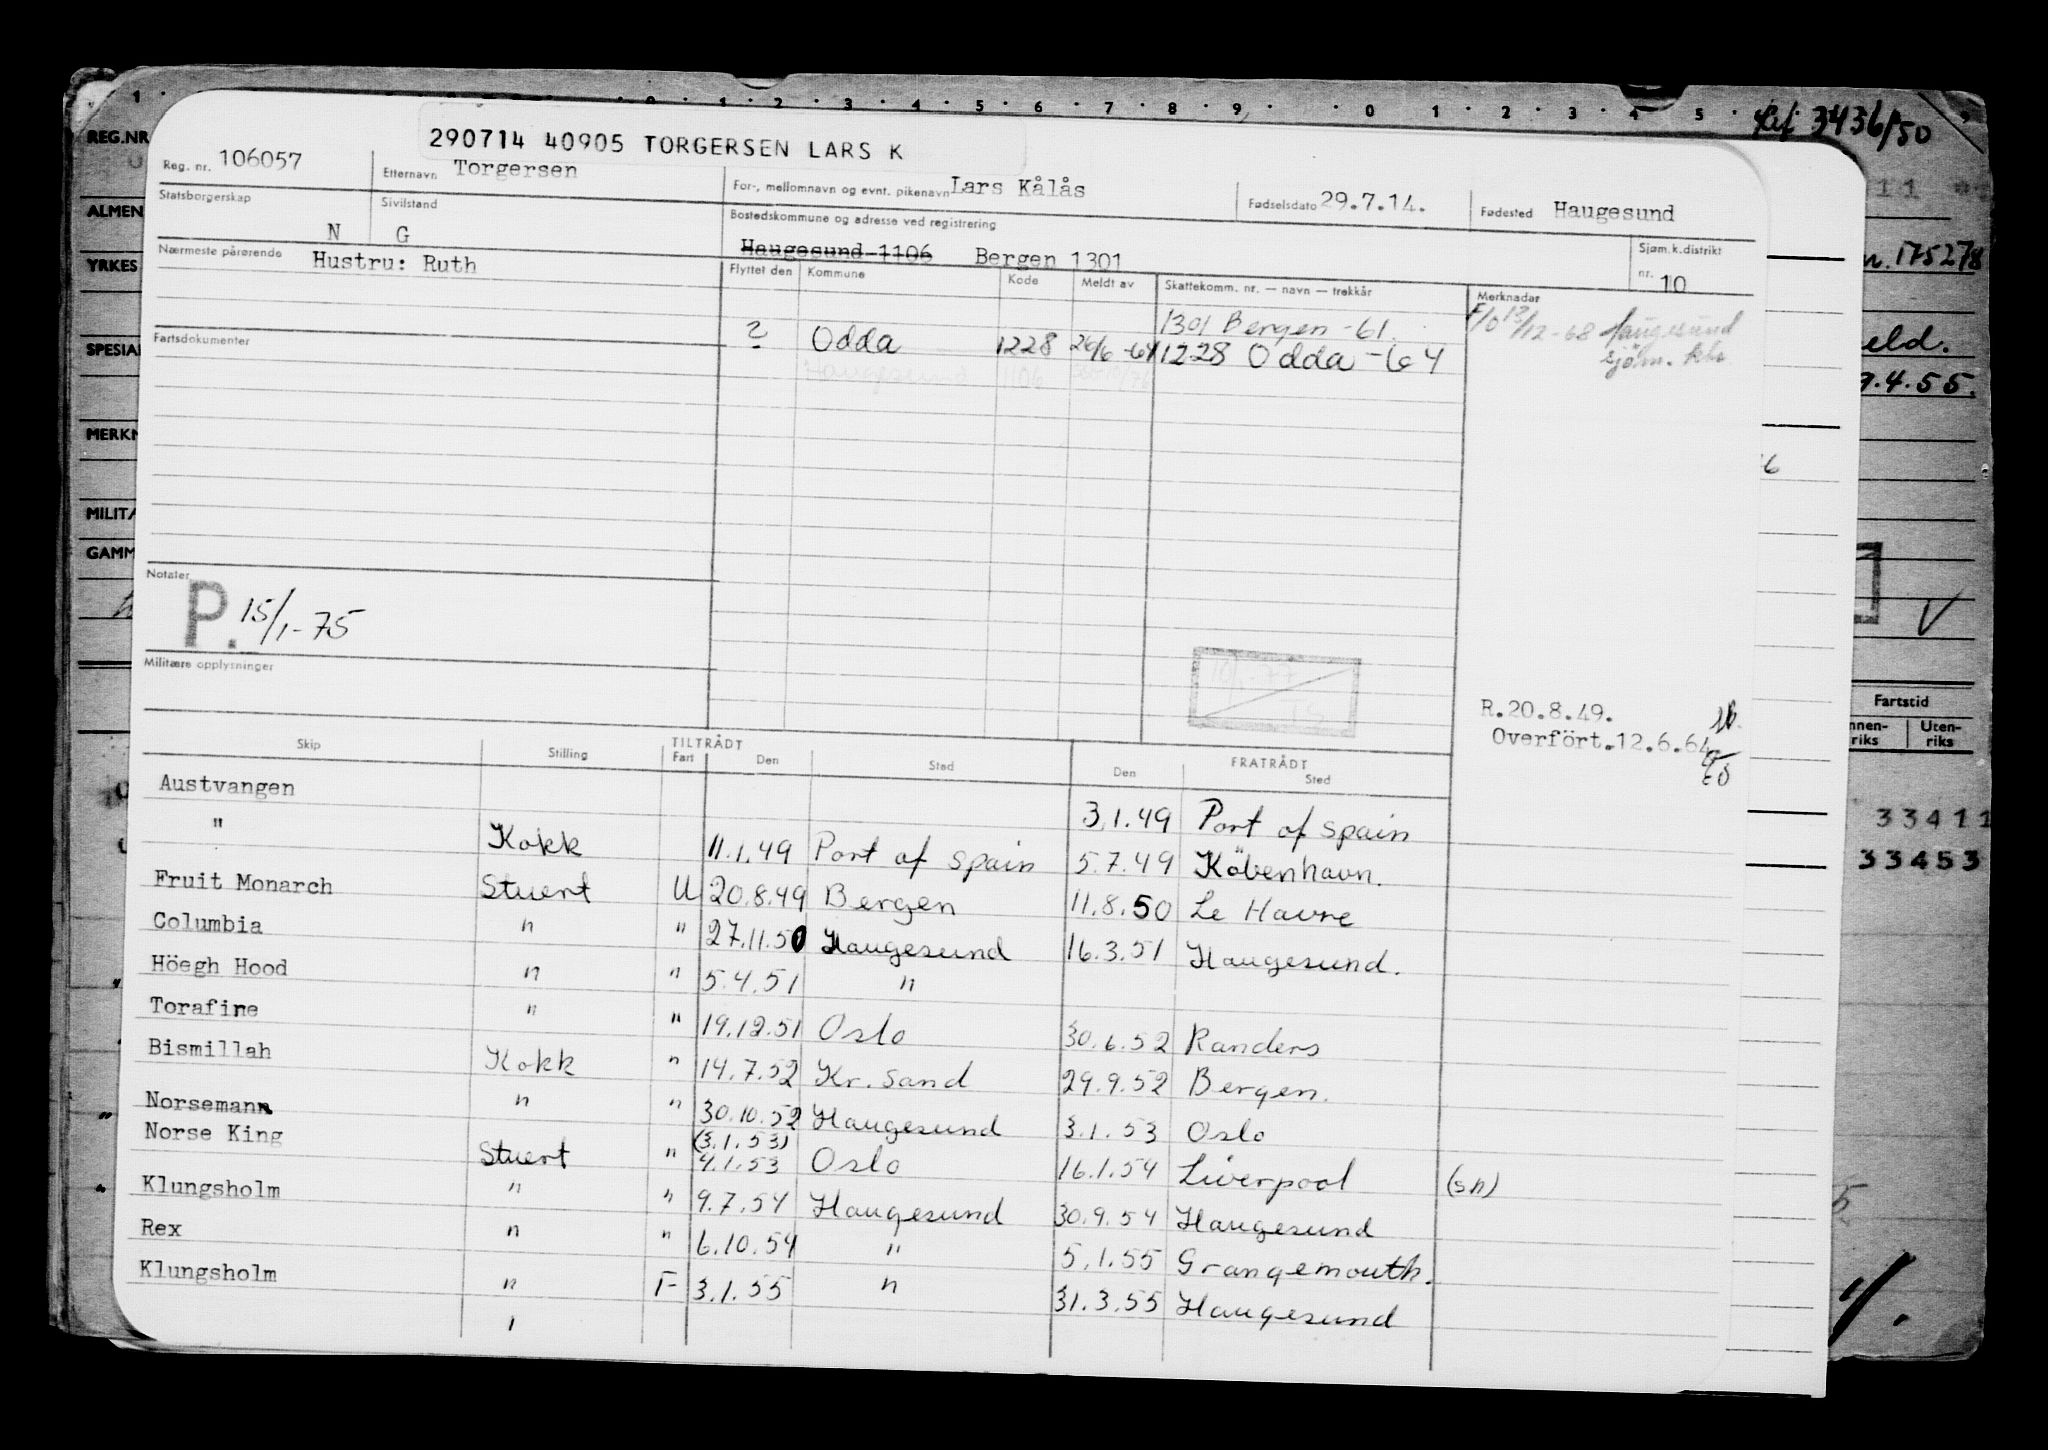 1 2 3 4 5 6 7 8 9 0 1 2 3 4 5
REG.NR
3436/50
290714 40905 TORGERSEN LARS K
Reg. nr. 106057 Etternavn Torgersen For-, mellomnavn og evnt. pikenavn Lars Kålås Fødselsdato 29.7.14. Fødested Haugesund
Statsborgerskap N Sivilstand G Bostedskommune og adresse ved registrering
Haugesund 1106 Bergen 1301 Sjøm.k.distrikt nr. 10
Nærmeste pårørende Hustru: Ruth
Flyttet den Kommune Kode Meldt av Skattekomm. nr. — navn — trekkår Merknader
1301 Bergen -61. F/o 13/12-68 Haugesund
? Odda 1228 26/6-64 1228 Odda -64 sjöm. ktr.
Haugesund 1106
Fartsdokumenter
Notater
P. 15/1-75
Militære opplysninger
R.20.8.49.
Overfört.12.6.64
Skip Stilling TILTRÅDT Fart Den Sted FRATRÅDT Den Sted
Austvangen 3.1.49 Port of Spain
" Kokk 11.1.49 Port of Spain 5.7.49 Köbenhavn.
Fruit Monarch Stuert U 20.8.49 Bergen 11.8.50 Le Havre
Columbia " " 27.11.50 Haugesund 16.3.51 Haugesund.
Höegh Hood " " 5.4.51 "
Torafine " " 19.12.51 Oslo 30.6.52 Randers
Bismillah Kokk " 14.7.52 Kr. Sand 29.9.52 Bergen.
Norsemann " " 30.10.52 Haugesund 3.1.53 Oslo
(3.1.53)
Norse King Stuert " 4.1.53 Oslo 16.1.54 Liverpool (sh)
Klungsholm " " 9.7.54 Haugesund 30.9.54 Haugesund
Rex " " 6.10.54 " 5.1.55 Grangemouth.
Klungsholm " F 3.1.55 " 31.3.55 Haugesund
ALMEN
YRKES
SPESIAL
MERKN
MILITÆ
GAMM
175278
eld.
9.4.55.
V
Fartstid
Uten-
riks
33411
33453